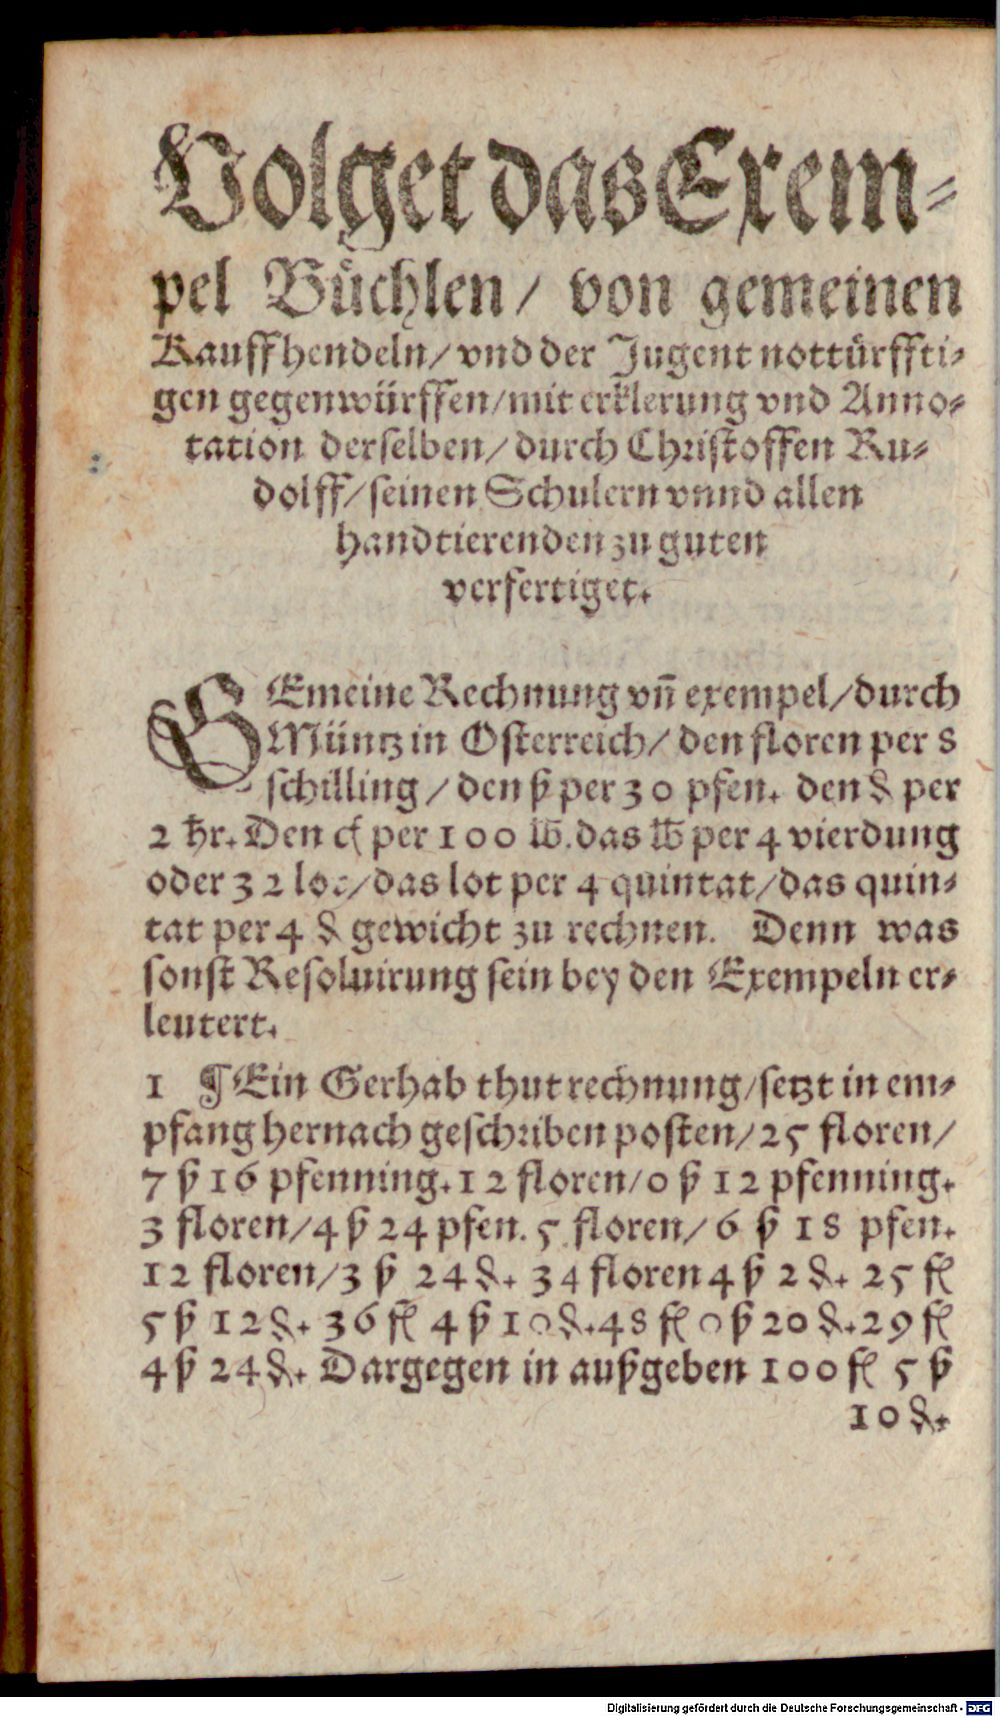 Volget das Exem-
pel Buͤchlen / von gemeinen
Kauffhendeln / vnd der Jugent nottürffti-
gen gegenwürffen / mit erklerung vnd Anno-
tation derselben / durch Christoffen Ru-
dolff / seinen Schulern vnnd allen
handtierenden zu guten
verfertiget.
GEmeine Rechnung vn̄ exempel / durch
Müntz in Osterreich / den floren per 8
schilling / den ß per 30 pfen. den ₰ per
2 hr. Den ct per 100 ℔. das ℔ per 4 vierdung
oder 32 lot / das lot per 4 quintat / das quin-
tat per 4 ₰ gewicht zu rechnen. Denn was
sonst Resoluirung sein bey den Exempeln er-
leutert.
1 ¶ Ein Gerhab thut rechnung / setzt in em-
pfang hernach geschriben posten / 25 floren /
7 ß 16 pfenning. 12 floren / 0 ß 12 pfenning.
3 floren / 4 ß 24 pfen. 5 floren / 6 ß 18 pfen.
12 floren / 3 ß 24 ₰. 34 floren 4 ß 2 ₰. 25 fl
5 ß 12 ₰. 36 fl 4 ß 10 ₰. 48 fl 0 ß 20 ₰. 29 fl
4 ß 24 ₰. Dargegen in außgeben 100 fl 5 ß
10 ₰.
Digitalisierung gefördert durch die Deutsche Forschungsgemeinschaft - DFG